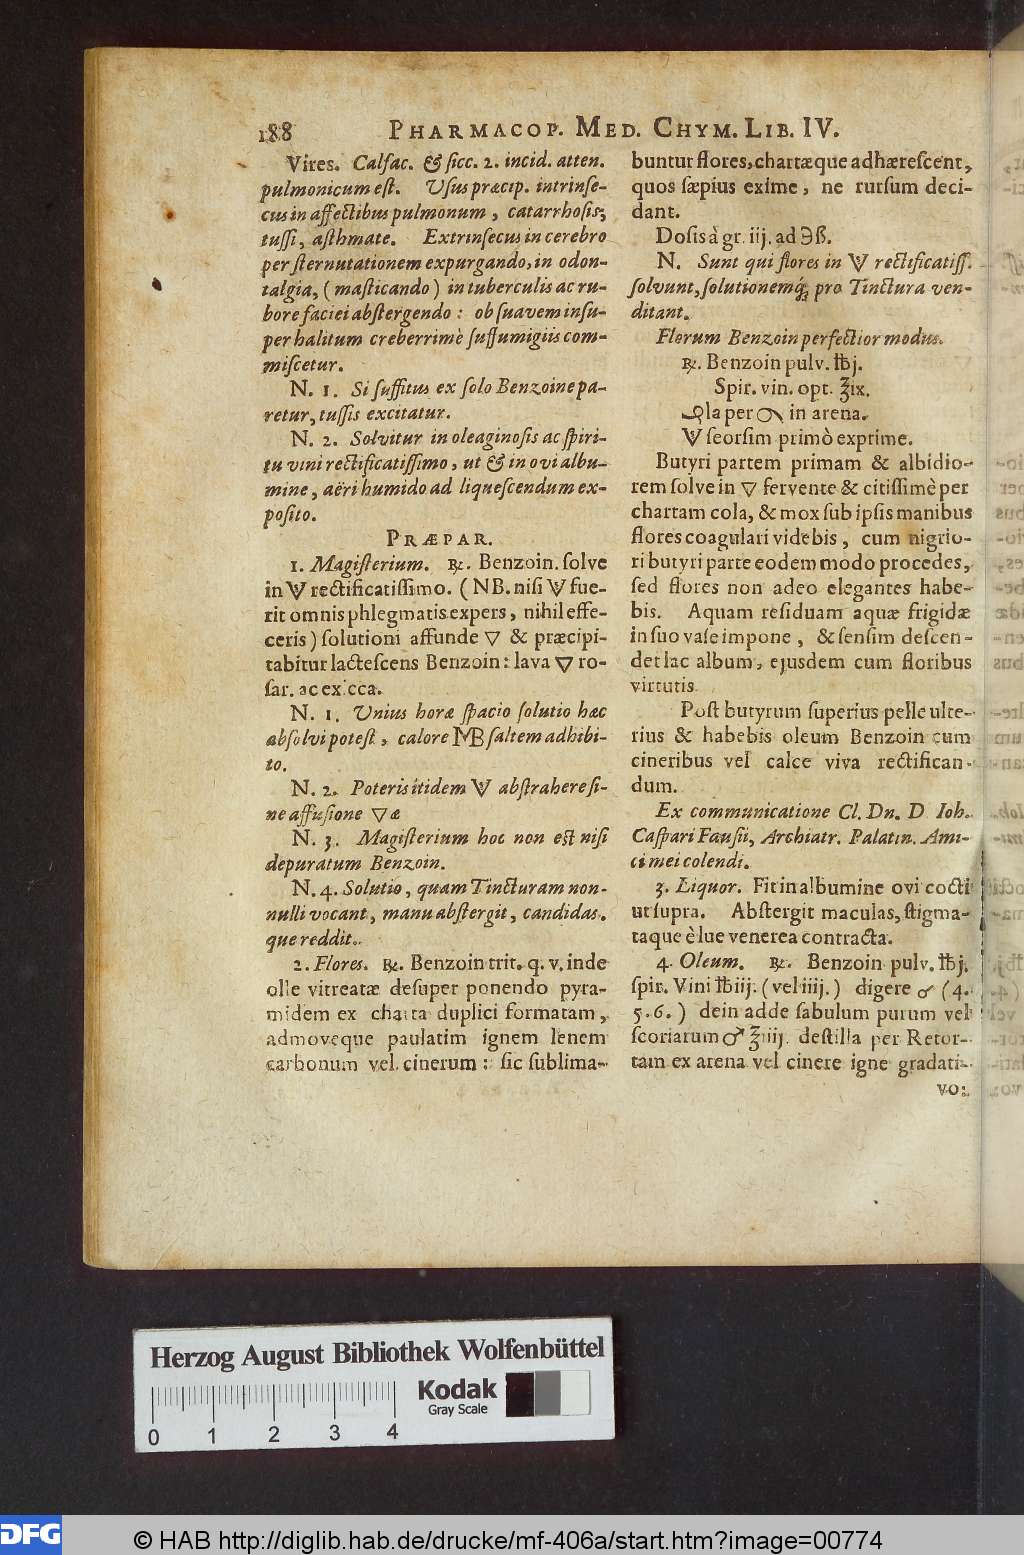 188 PHARMACOP. MED. CHYM. LIB. IV.
Vires. Calfac. & ſicc. 2. incid. atten.
pulmonicum eſt. Uſus præcip. intrinſe-
cus in affectibus pulmonum, catarrhoſis,
tuſſi, aſthmate. Extrinſecus in cerebro
per ſternutationem expurgando, in odon-
talgia, (maſticando) in tuberculis ac ru-
bore faciei abſtergendo: ob ſuavem inſu-
per halitum creberrimè ſuffumigiis com-
miſcetur.
N. 1. Si ſuffitus ex ſolo Benzoine pa-
retur, tuſſis excitatur.
N. 2. Solvitur in oleaginoſis ac ſpiri-
tu vini rectificatiſſimo, ut & in ovi albu-
mine, aëri humido ad liqueſcendum ex-
poſito.
PRÆPAR.
1. Magiſterium. ℞. Benzoin. ſolve
in V rectificatiſſimo. (NB. niſi V fue-
rit omnis phlegmatis expers, nihil effe-
ceris) ſolutioni affunde ▽ & præcipi-
tabitur lacteſcens Benzoin: lava ▽ ro-
ſar. ac exicca.
N. 1. Unius horæ ſpacio ſolutio hæc
abſolvi poteſt, calore MB ſaltem adhibi-
to.
N. 2. Poteris itidem V abſtrahere ſi-
ne affuſione ▽æ
N. 3. Magiſterium hoc non eſt niſi
depuratum Benzoin.
N. 4. Solutio, quam Tincturam non-
nulli vocant, manu abſtergit, candidas-
que reddit.
2. Flores. ℞. Benzoin trit. q. v. inde
olle vitreatæ deſuper ponendo pyra-
midem ex charta duplici formatam,
admoveque paulatim ignem lenem
carbonum vel cinerum: ſic ſublima-
buntur flores, chartæque adhæreſcent,
quos ſæpius exime, ne rurſum deci-
dant.
Doſis à gr. iij. ad ℈ß.
N. Sunt qui flores in V rectificatiſſ.
ſolvunt, ſolutionemq́; pro Tinctura ven-
ditant.
Florum Benzoin perfectior modus.
℞. Benzoin pulv. ℔j.
Spir. vin. opt. ℥ix.
la per in arena.
V ſeorſim primò exprime.
Butyri partem primam & albidio-
rem ſolve in ▽ fervente & citiſſimè per
chartam cola, & mox ſub ipſis manibus
flores coagulari videbis, cum nigrio-
ri butyri parte eodem modo procedes,
ſed flores non adeo elegantes habe-
bis. Aquam reſiduam aquæ frigidæ
in ſuo vaſe impone, & ſenſim deſcen-
det lac album, ejusdem cum floribus
virtutis.
Poſt butyrum ſuperius pelle ulte-
rius & habebis oleum Benzoin cum
cineribus vel calce viva rectifican-
dum.
Ex communicatione Cl. Dn. D Ioh.
Caſpari Fauſii, Archiatr. Palatin. Ami-
ci mei colendi.
3. Liquor. Fit in albumine ovi cocti
ut ſupra. Abſtergit maculas, ſtigma-
taque è lue venerea contracta.
4. Oleum. ℞. Benzoin pulv. ℔j.
ſpir. Vini ℔iij. (vel iiij.) digere (4.
5. 6.) dein adde ſabulum purum vel
ſcoriarum ♂ ℥iiij. deſtilla per Retor-
tam ex arena vel cinere igne gradati-
vo:
Herzog August Bibliothek Wolfenbüttel
Kodak
Gray Scale
0 1 2 3 4
DFG
© HAB http://diglib.hab.de/drucke/mf-406a/start.htm?image=00774